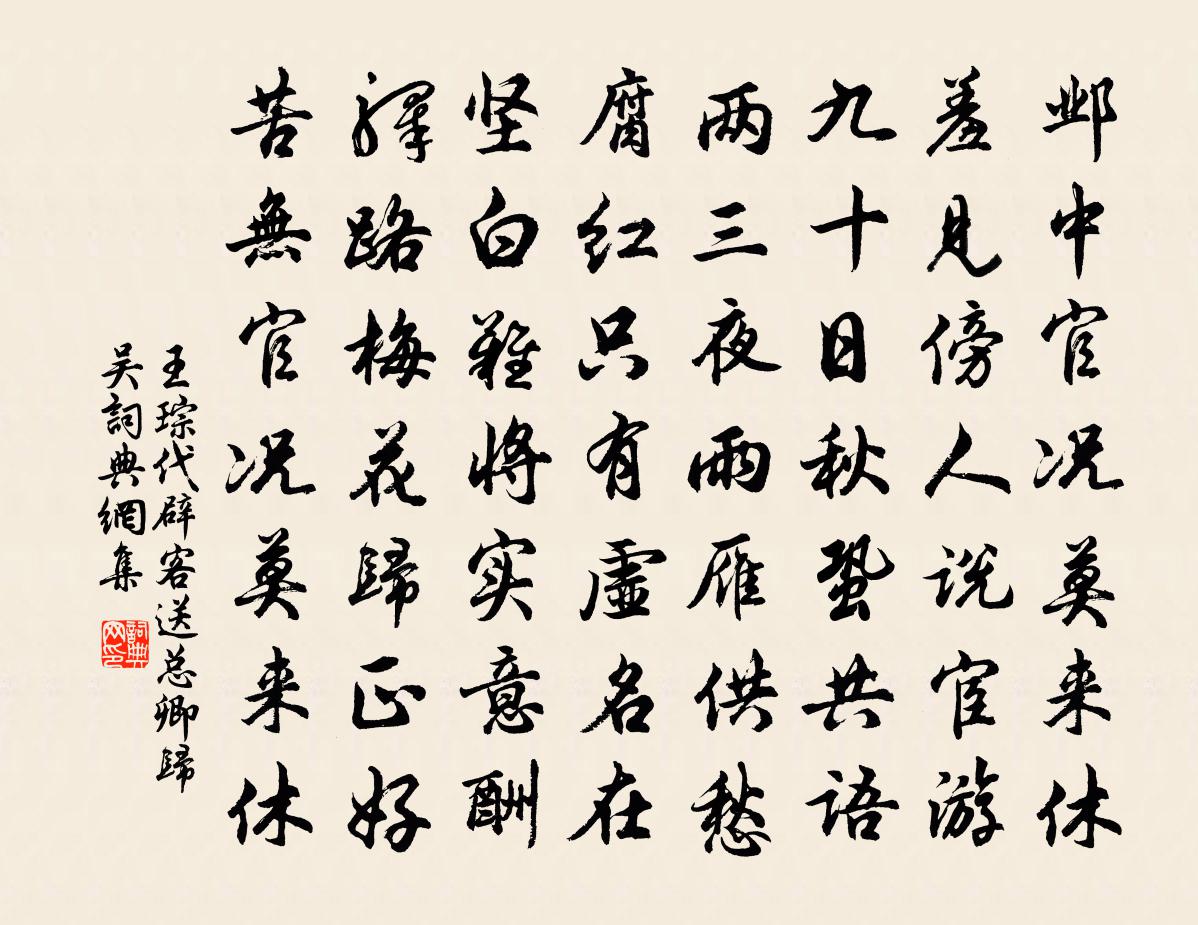 邺中官况莫来休
羞见傍人说宦游
九十日秋蛩共语
两三夜雨雁供愁
腐红只有虚名在
坚白難将实意酬
驛路梅花歸正好
苦無官况莫来休
王琮代辟客送总卿歸
吴詞典網集
詞典网印